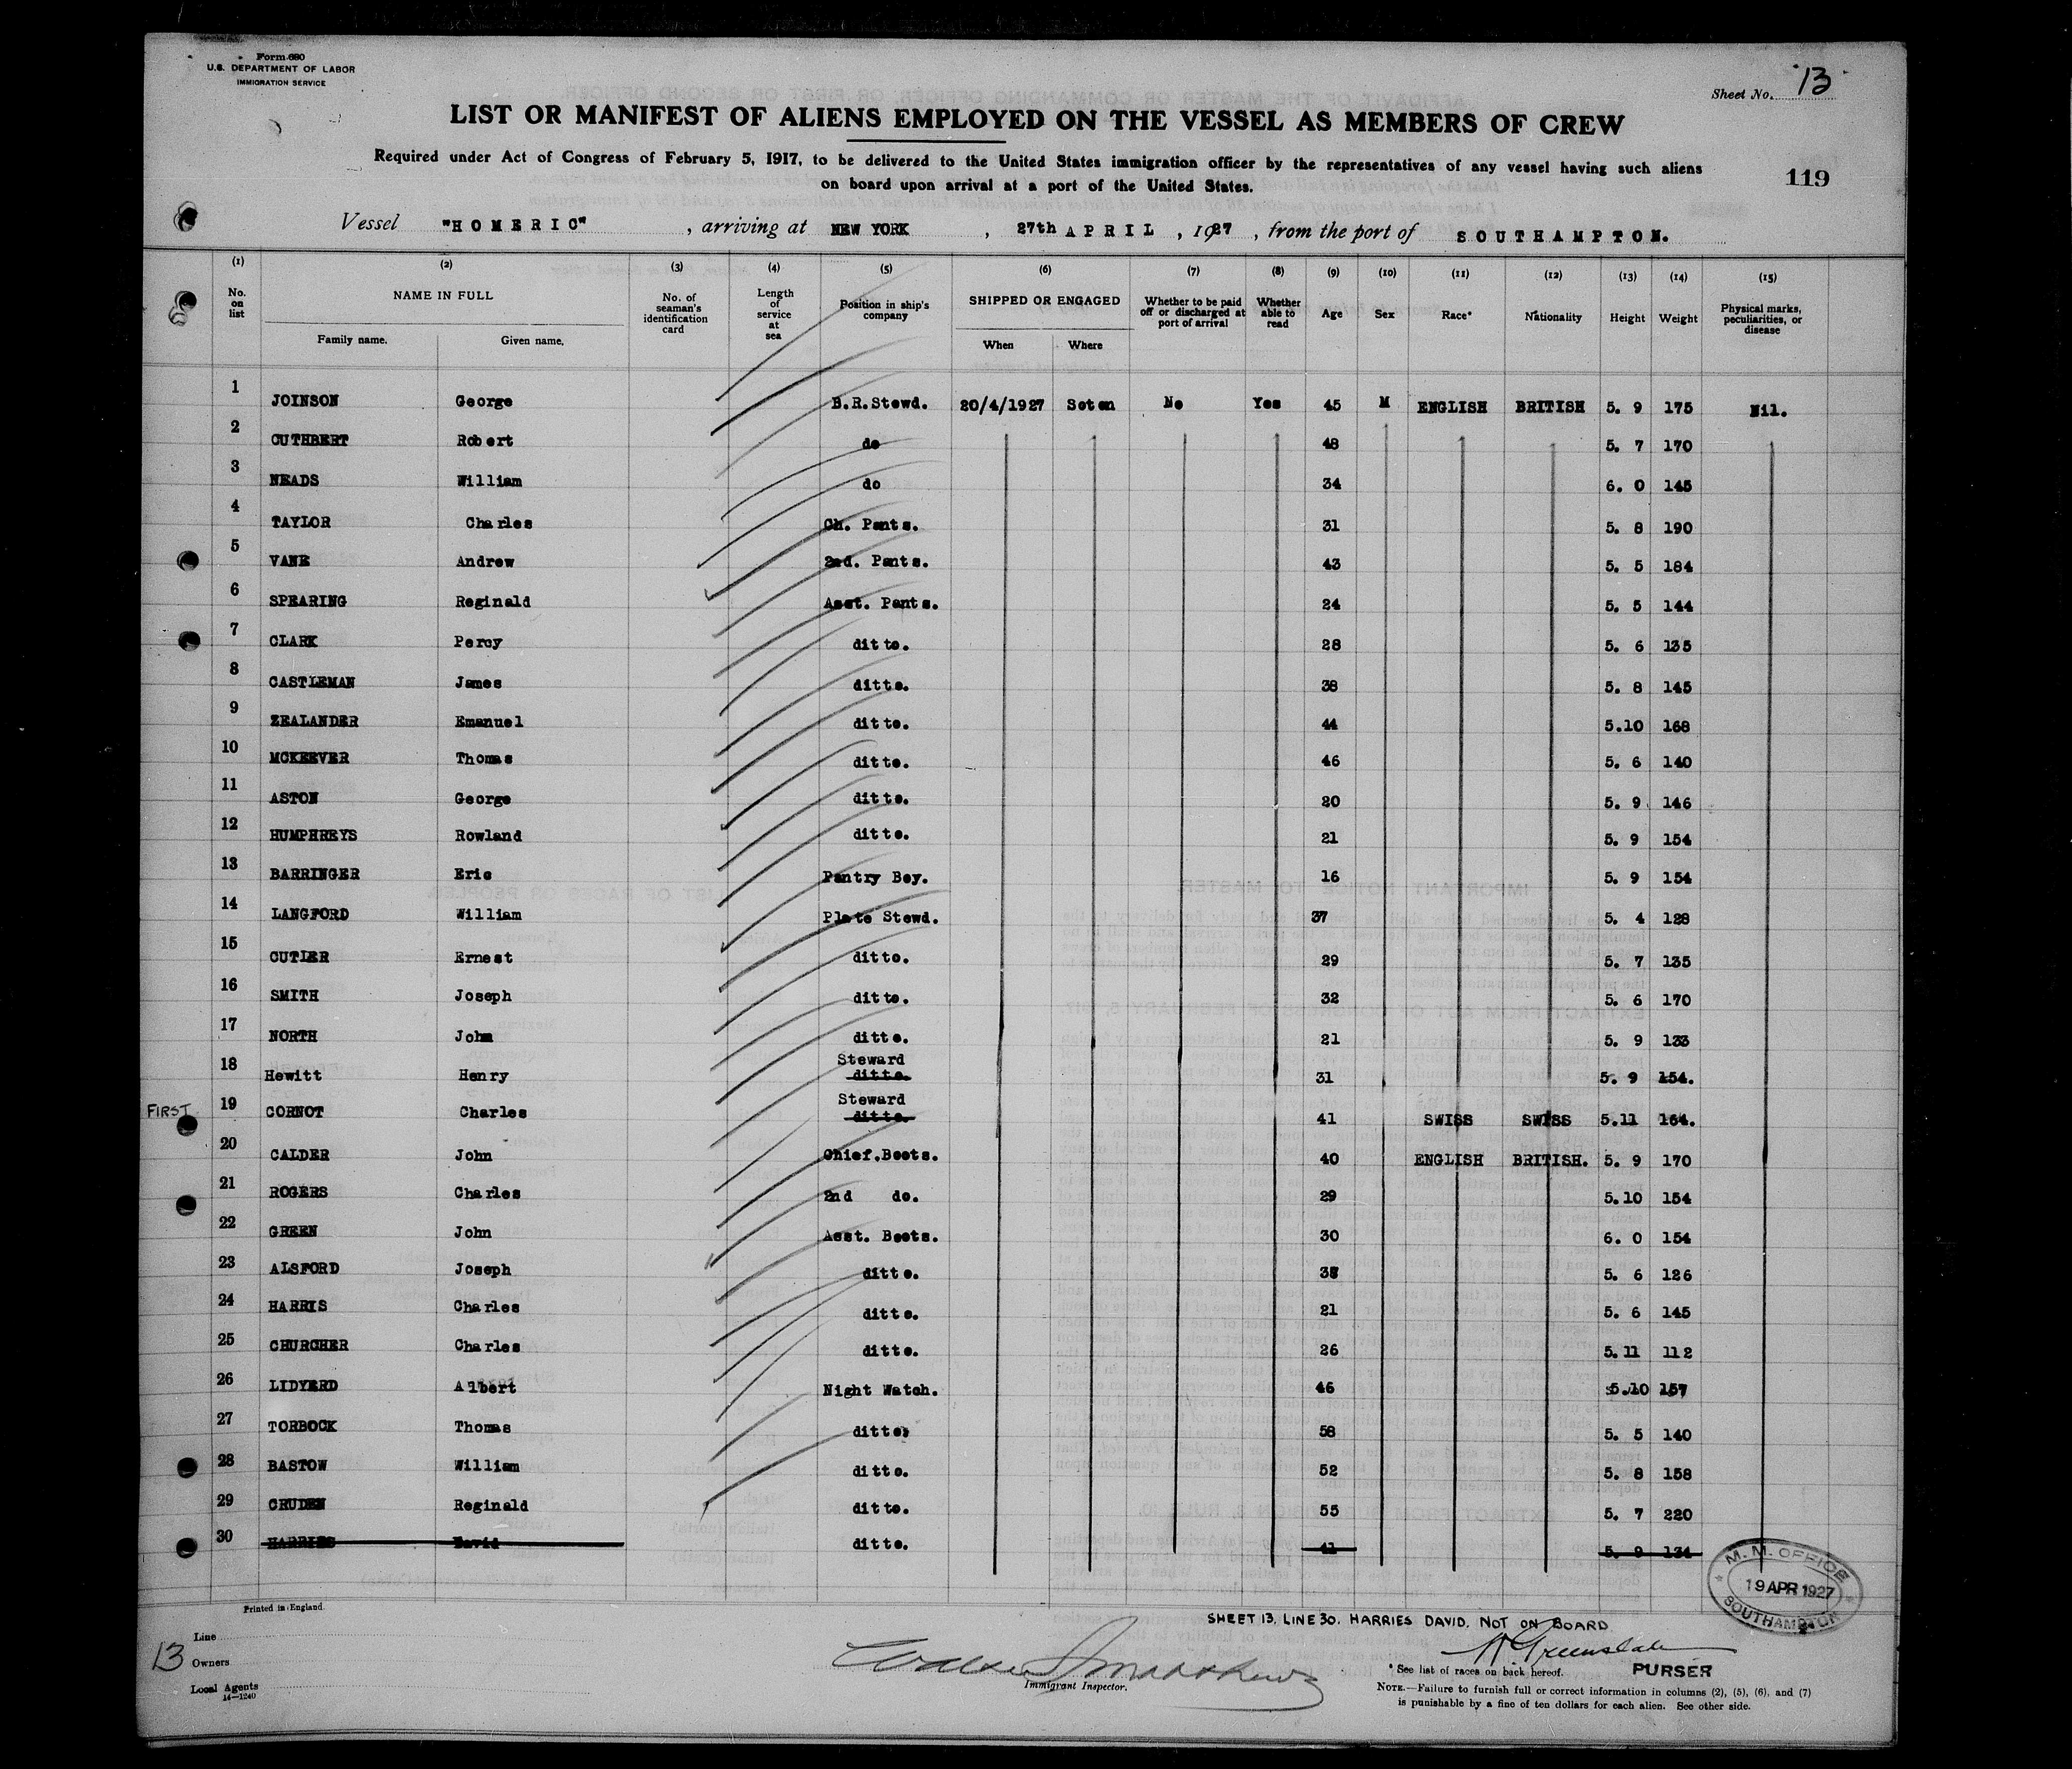 Form 680
U.S. DEPARTMENT OF LABOR
IMMIGRATION SERVICE
Sheet No. 13
LIST OR MANIFEST OF ALIENS EMPLOYED ON THE VESSEL AS MEMBERS OF CREW
Required under Act of Congress of February 5, 1917, to be delivered to the United States immigration officer by the representatives of any vessel having such aliens
on board upon arrival at a port of the United States.
119
Vessel "HOMERIC", arriving at NEW YORK, 27th APRIL, 1927, from the port of SOUTHAMPTON.
(1) (2) (3) (4) (5) (6) (7) (8) (9) (10) (11) (12) (13) (14) (15)
No. on list NAME IN FULL Family name. Given name. No. of seaman's identification card Length of service at sea Position in ship's company SHIPPED OR ENGAGED When Where Whether to be paid off or discharged at port of arrival Whether able to read Age Sex Race* Nationality Height Weight Physical marks, peculiarities, or disease
1 JOINSON George B.R.Stewd. 20/4/1927 Soton No Yes 45 M ENGLISH BRITISH 5. 9 175 Nil.
2 CUTHBERT Robert do 48 5. 7 170
3 NEADS William do 34 6. 0 145
4 TAYLOR Charles Ch. Pants. 31 5. 8 190
5 VANE Andrew 2nd. Pants. 43 5. 5 184
6 SPEARING Reginald Asst. Pants. 24 5. 5 144
7 CLARK Percy ditto. 28 5. 6 135
8 CASTLEMAN James ditto. 38 5. 8 145
9 ZEALANDER Emanuel ditto. 44 5.10 168
10 MCKEEVER Thomas ditto. 46 5. 6 140
11 ASTON George ditto. 20 5. 9 146
12 HUMPHREYS Rowland ditto. 21 5. 9 154
13 BARRINGER Eric Pantry Boy. 16 5. 9 154
14 LANGFORD William Plate Stewd. 37 5. 4 128
15 CUTLER Ernest ditto. 29 5. 7 135
16 SMITH Joseph ditto. 32 5. 6 170
17 NORTH John ditto. 21 5. 9 133
18 Hewitt Henry Steward ditto. 31 5. 9 154.
FIRST 19 CORNOT Charles Steward ditto. 41 SWISS SWISS 5.11 164.
20 CALDER John Chief.Boots. 40 ENGLISH BRITISH. 5. 9 170
21 ROGERS Charles 2nd do. 29 5.10 154
22 GREEN John Asst. Boots. 30 6. 0 154
23 ALSFORD Joseph ditto. 38 5. 6 126
24 HARRIS Charles ditto. 21 5. 6 145
25 CHURCHER Charles ditto. 26 5.11 112
26 LIDYERD Albert Night Watch. 46 5.10 157
27 TORBOCK Thomas ditto. 58 5. 5 140
28 BASTOW William ditto. 52 5. 8 158
29 CRUDEN Reginald ditto. 55 5. 7 220
30 HARRIES David ditto. 41 5. 9 134
M.M. OFFICE
19 APR 1927
SOUTHAMPTON
Printed in England
SHEET 13. LINE 30. HARRIES DAVID. NOT ON BOARD
Line
13 Owners
Local Agents
14—1240
Immigrant Inspector.
* See list of races on back hereof. PURSER
NOTE.—Failure to furnish full or correct information in columns (2), (5), (6), and (7)
is punishable by a fine of ten dollars for each alien. See other side.